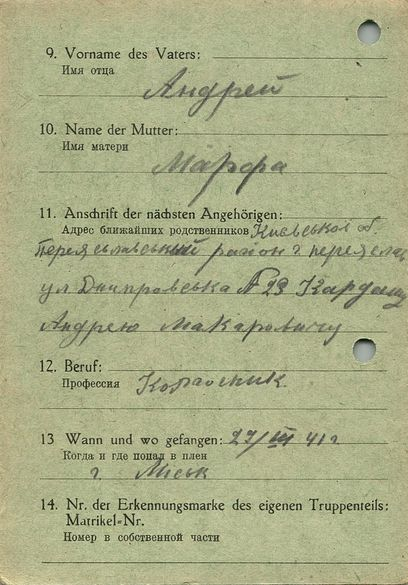 9. Vorname des Vaters:
Имя отца
Андрей
10. Name der Mutter:
Имя матери
Марфа
11. Anschrift der nächsten Angehörigen:
Адрес ближайших родственников Киевської об.
Переяславський район г. переяслав
ул Дніпровська № 29 Кардашу
Андрею Макаровичу
12. Beruf:
Профессия
Колхосник
13 Wann und wo gefangen: 27/III 41 г
Когда и где попал в плен
г.
14. Nr. der Erkennungsmarke des eigenen Truppenteils:
Matrikel-Nr.
Номер в собственной части